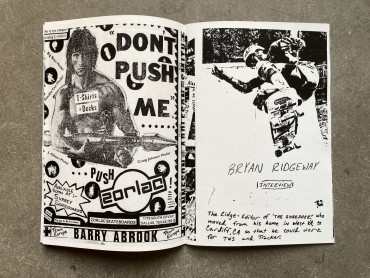 "DON'T
PUSH
ME"
T-Shirts
& Decks
Craig Johnson Photo
PUSH
ZORLAC
ZORLAC SKATEBOARDS
DALLAS TEXAS
BARRY ABROOK
BRYAN RIDGEWAY
INTERVIEW
The Ridge-Editor of 'THE SHREDDER', who
moved from his home in West VA to
Cardiff, CA so that he could work
for TWS and Tracker.